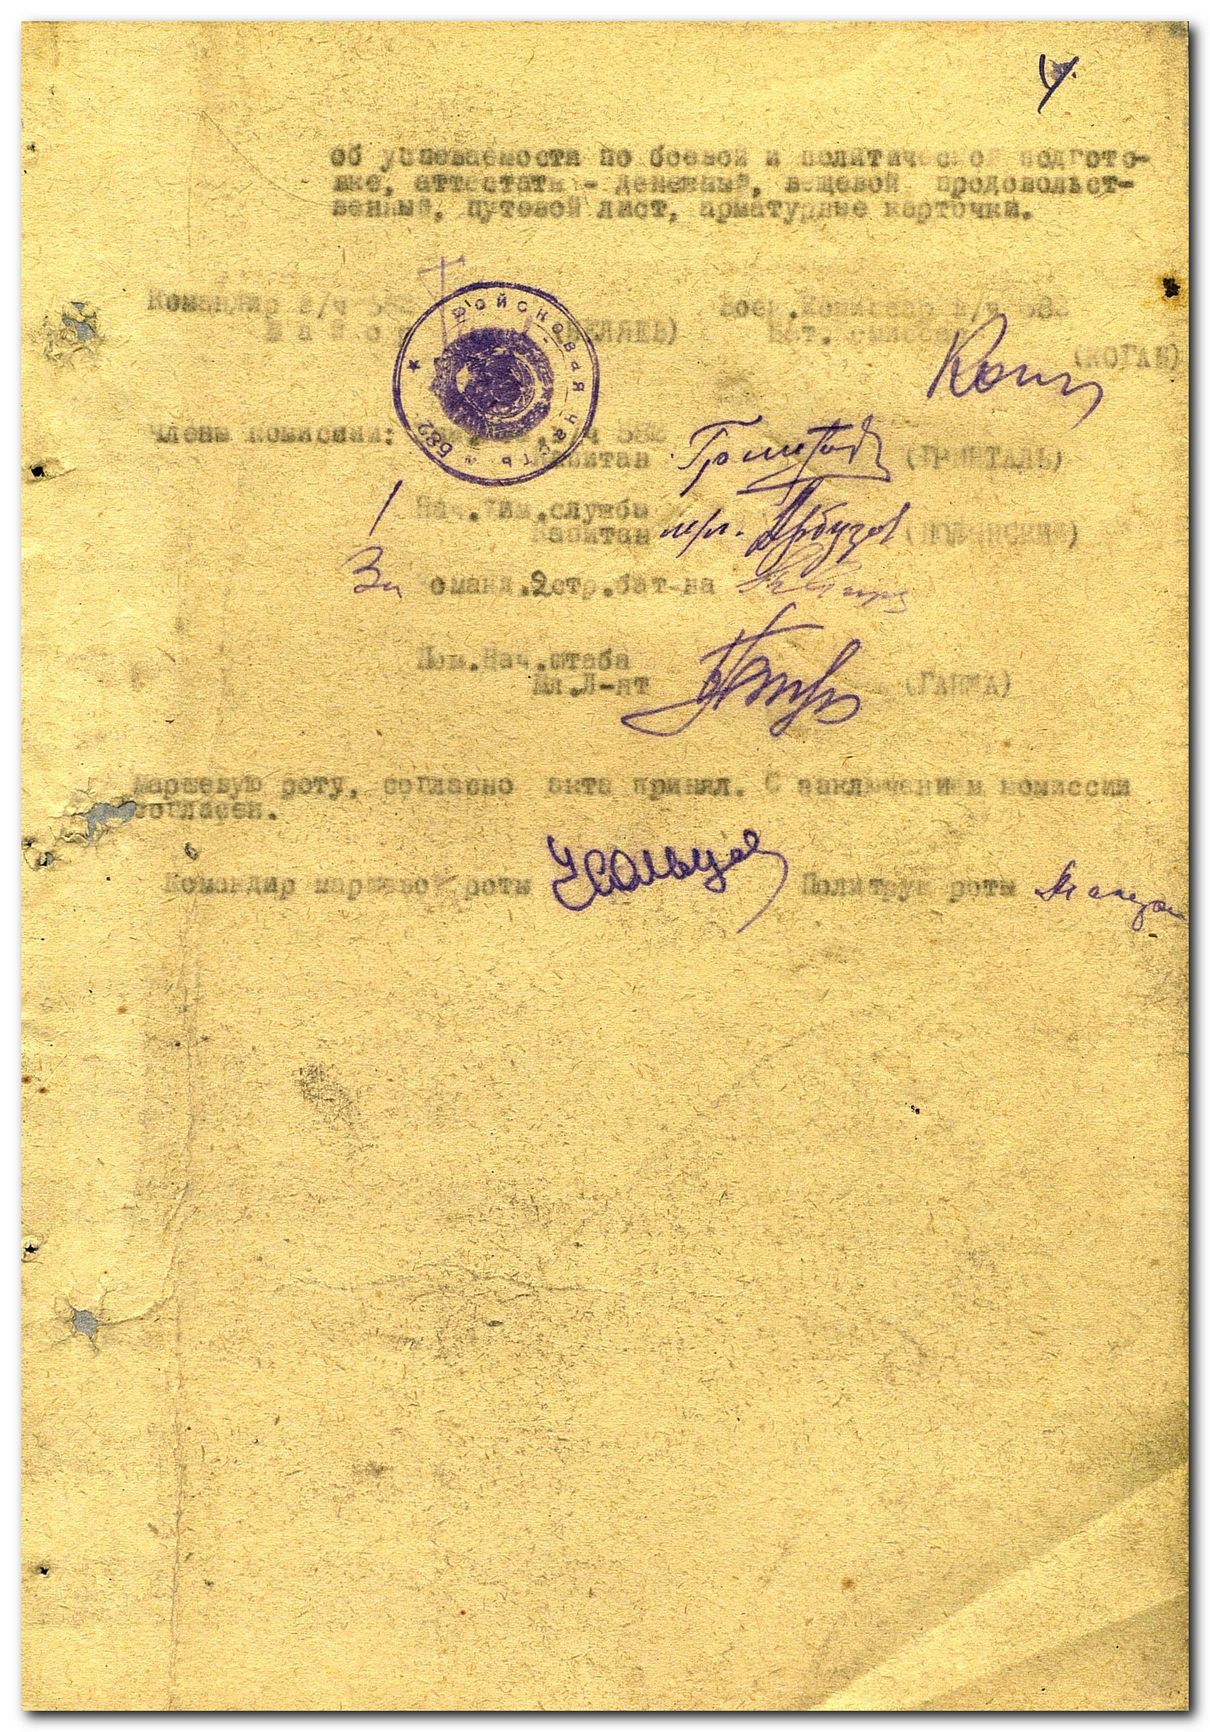 об успеваемости по боевой и политической подгото-
вке, аттестаты - денежный, вещевой продовольст-
венный, путевой лист, арматурные карточки.
Командир в/ч 582 Воен.Комиссар в/ч 582
Майор (БЕЛЯЕВ) Бат. комиссар
(КОГАН)
Войсковая часть № 582
Члены комиссии: в/ч 582
Капитан (ГРИНТАЛЬ)
Нач.хим.службы
Капитан Арбузов
За Команд.2стр.бат-на
Пом.Нач.штаба
Мл.Л-нт (ГАНЖА)
Маршевую роту, согласно акта принял. С заключением комиссии
согласен.
Командир маршевой роты Усольцев Политрук роты